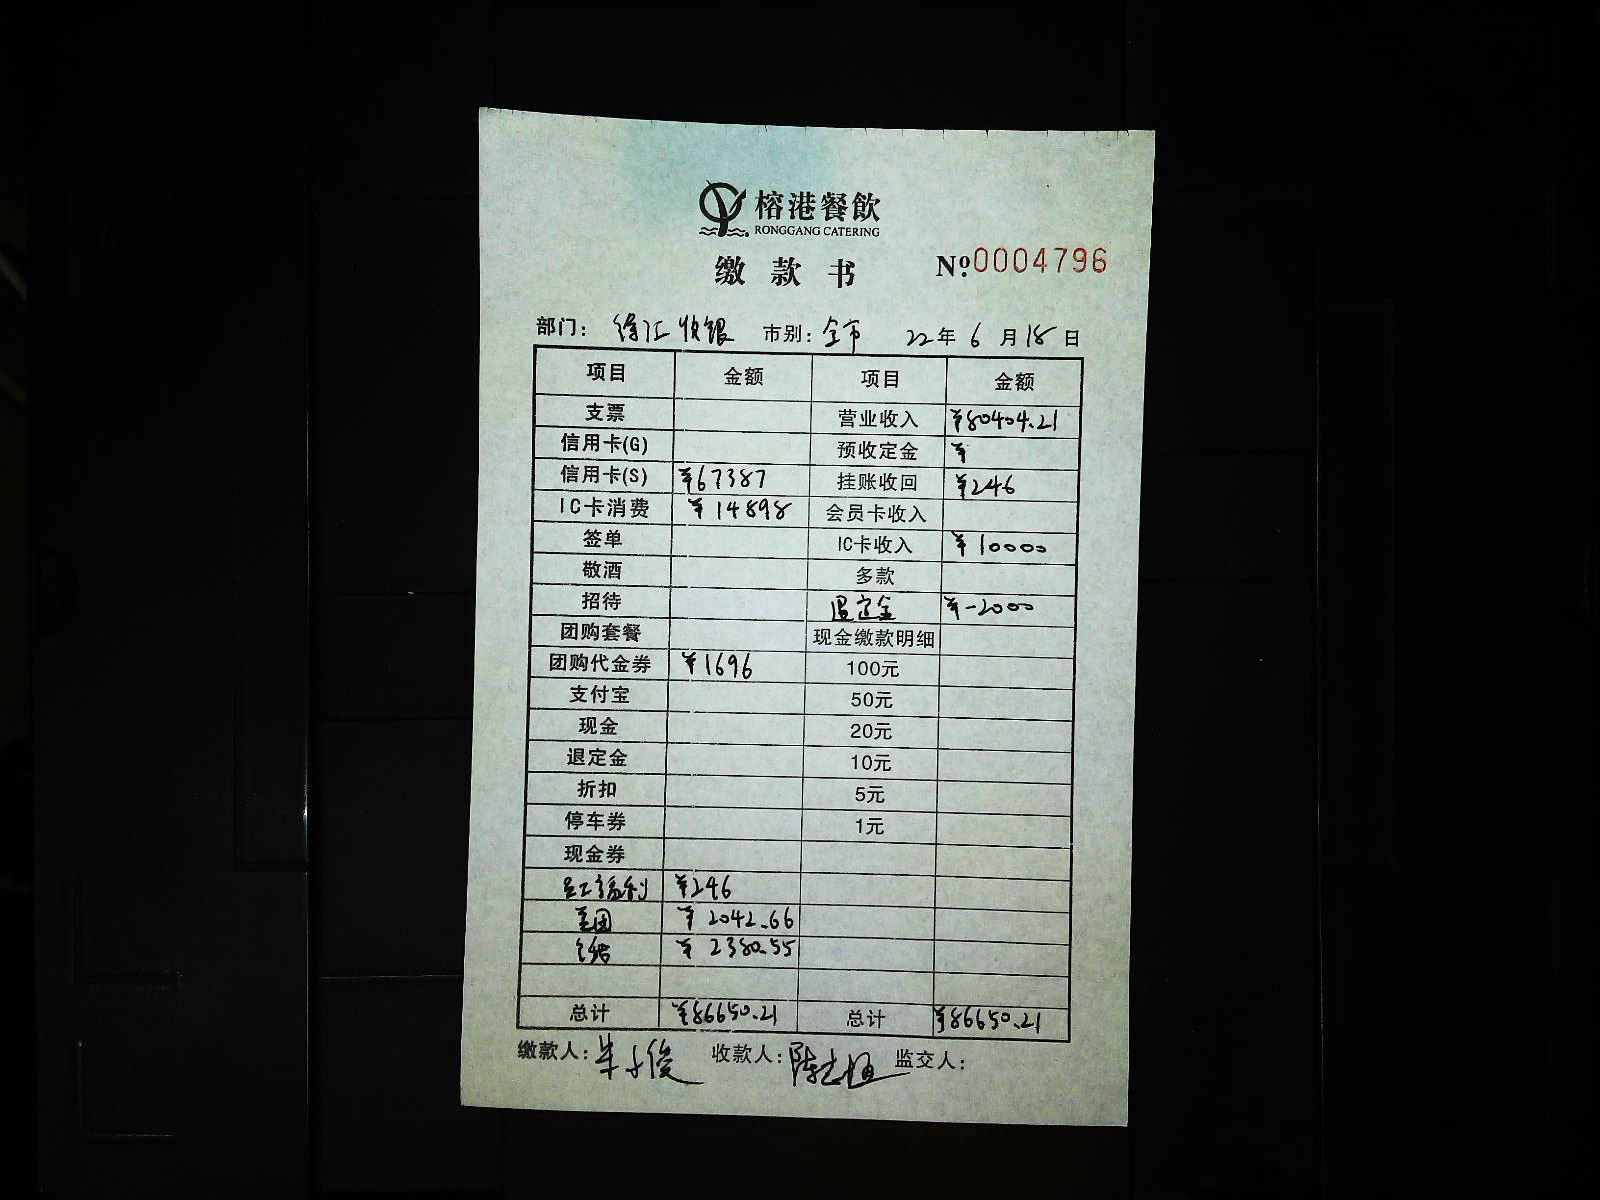 榕港餐飲
RONGGANG CATERING
缴款书 №0004796
部门: 徐汇收银 市别: 全市 22年6月18日
项目 金额 项目 金额
支票 营业收入 ¥80404.21
信用卡(G) 预收定金 ¥
信用卡(S) ¥67387 挂账收回 ¥246
IC卡消费 ¥14898 会员卡收入
签单 IC卡收入 ¥10000
敬酒 多款
招待 退定金 ¥-2000
团购套餐 现金缴款明细
团购代金券 ¥1696 100元
支付宝 50元
现金 20元
退定金 10元
折扣 5元
停车券 1元
现金券
员工福利 ¥246
美团 ¥2042.66
¥2380.55
总计 ¥88650.21 总计 ¥88650.21
缴款人: 收款人: 监交人: